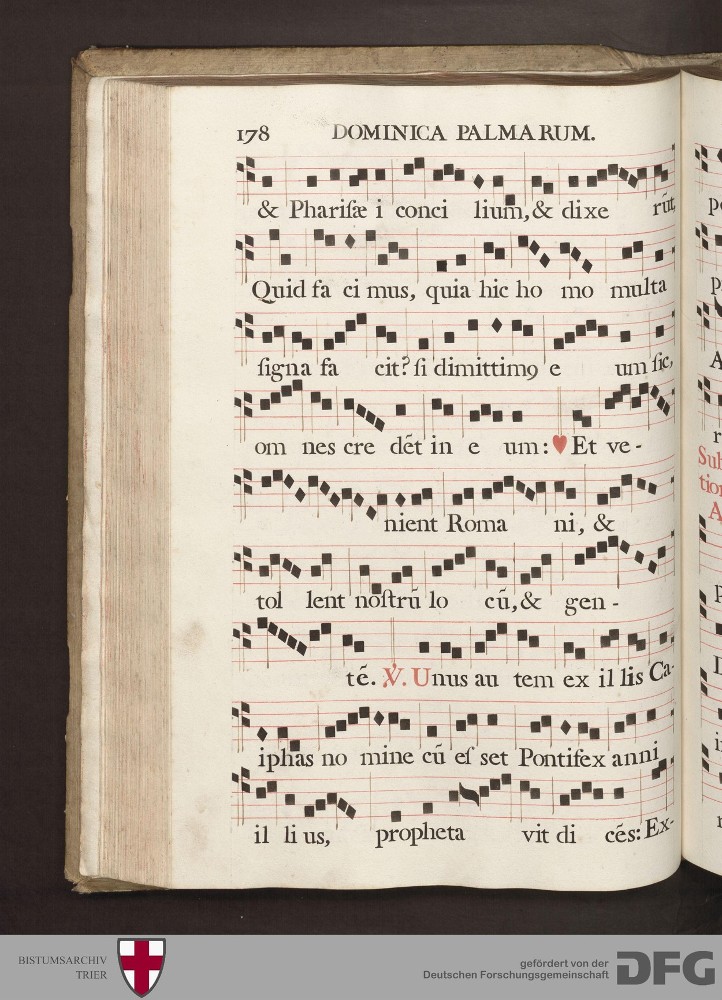 178 DOMINICA PALMARUM.
& Phariſæ i conci lium, & dixe rūt,
Quid fa ci mus, quia hic ho mo multa
ſigna fa cit? ſi dimittimꝯ e um ſic,
om nes cre dēt in e um: Et ve-
nient Roma ni, &
tol lent noſtrū lo cū, & gen-
tē. V. Unus au tem ex il lis Ca-
iphas no mine cū eſ set Pontifex anni
il li us, propheta vit di cēs: Ex-
BISTUMSARCHIV
TRIER
gefördert von der
Deutschen Forschungsgemeinschaft
DFG